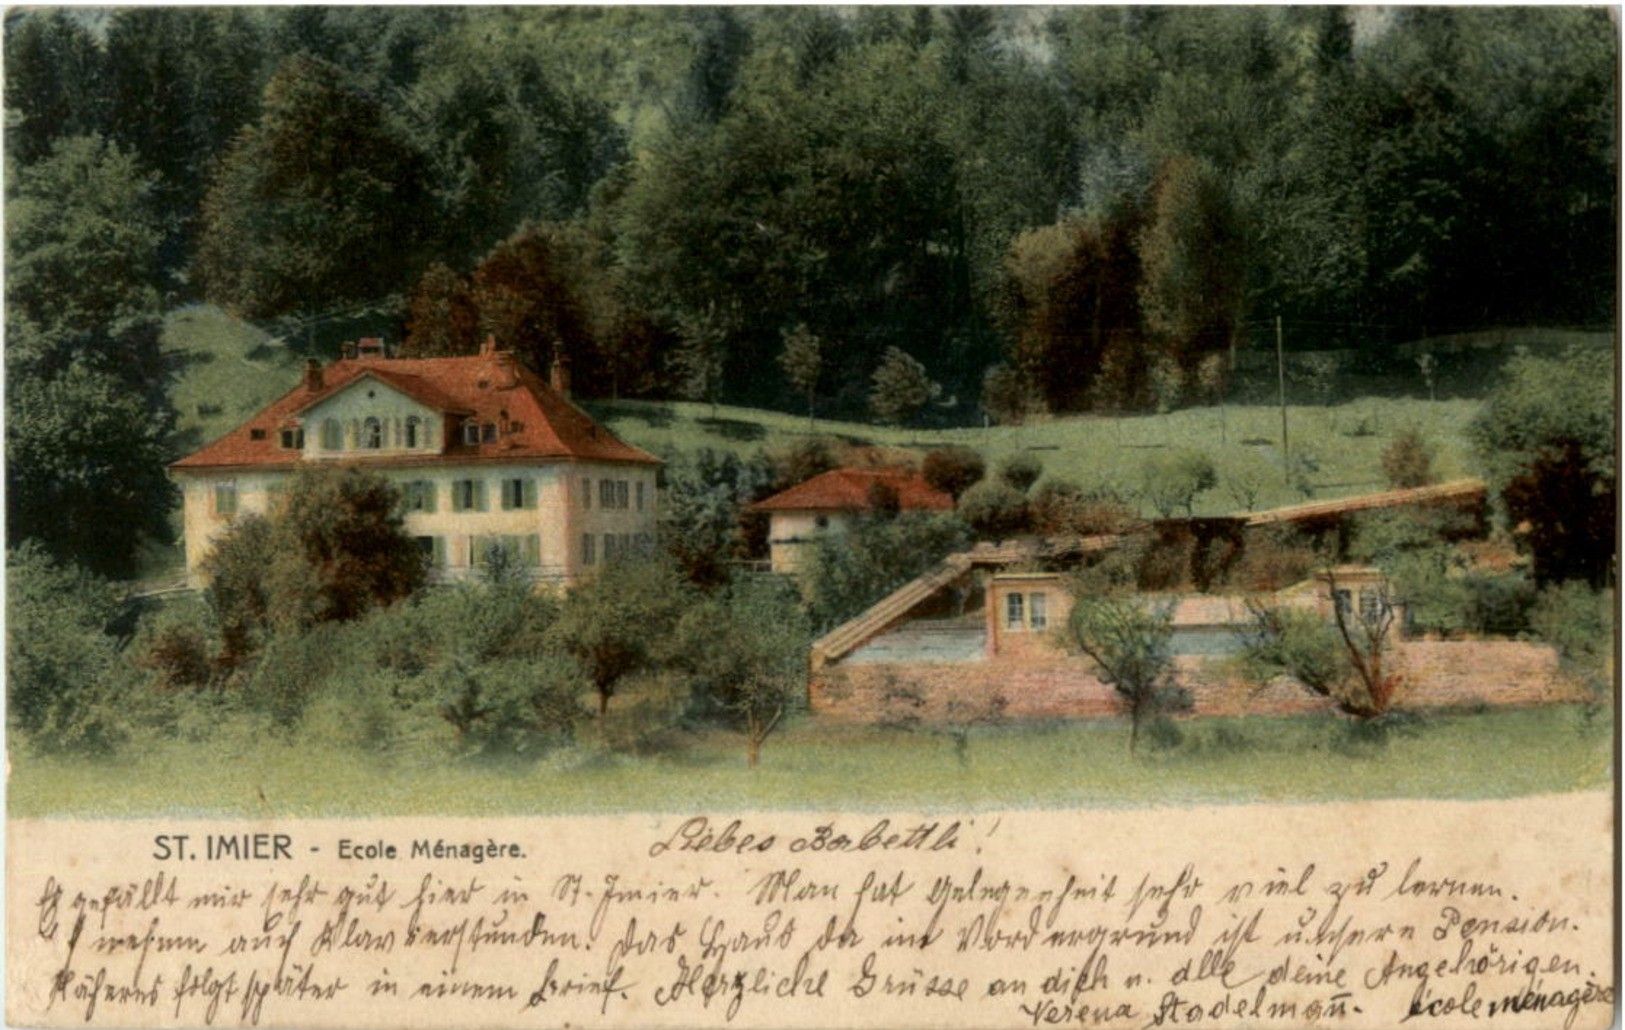 ST. IMIER - Ecole Ménagère.
Liebes Babettli!
Es gefällt mir sehr gut hier in St. Imier. Man hat Gelegenheit sehr viel zu lernen.
Ich nehme auch Klavierstunden. Das Haus da im Vordergrund ist unsere Pension.
Näheres folgt später in einem Brief. Herzliche Grüsse an dich u. alle deine Angehörigen.
Verena Stadelmann. école ménagère